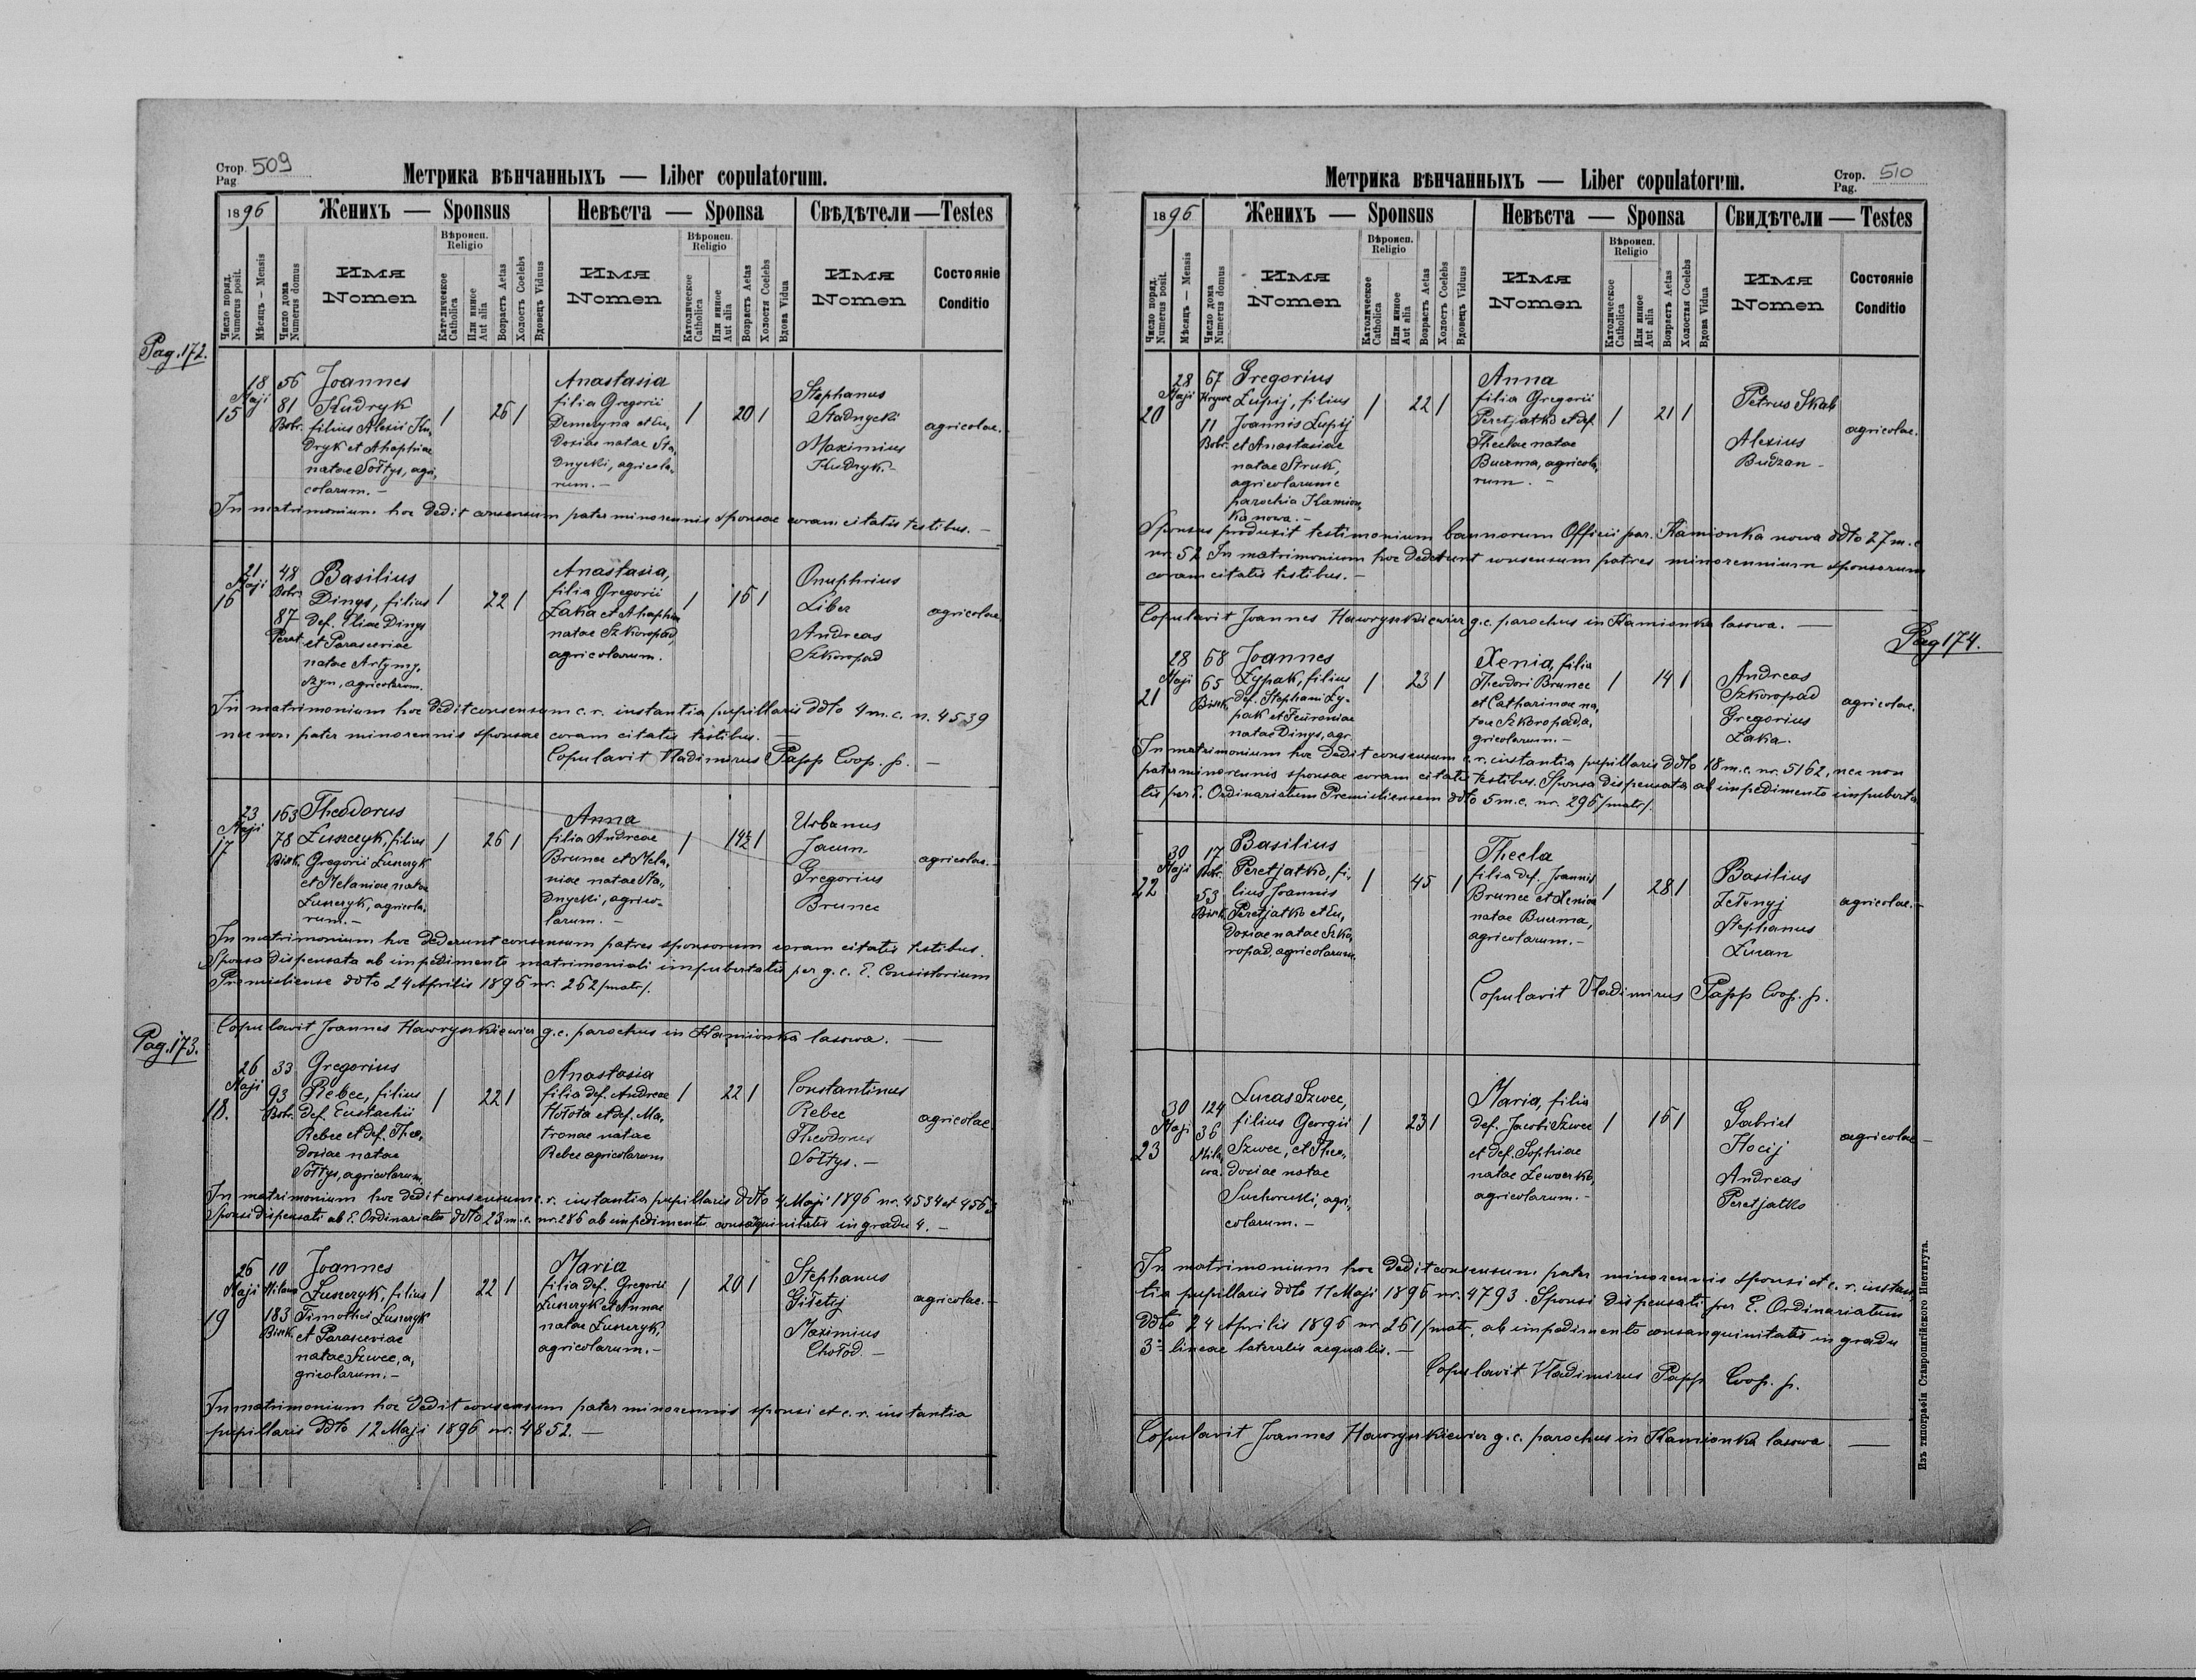 Стор. 509
Pag
Метрика вѣнчанныхъ — Liber copulatorum.
1896
Женихъ — Sponsus
Невѣста — Sponsa
Свѣдѣтели — Testes
Число поряд. Numerus posit.
Мѣсяцъ — Mensis
Число дома Numerus domus
Имя Nomen
Вѣроисп. Religio
Католическое Catholica
Или инное Aut alia
Возрастъ Aetas
Холостъ Coelebs
Вдовецъ Viduus
Имя Nomen
Вѣроисп. Religio
Католическое Catholica
Или инное Aut alia
Возрастъ Aetas
Холостая Coelebs
Вдова Vidua
Имя Nomen
Состояніе Conditio
Pag. 172.
15
18 Maji
56
81
Bobr.
Joannes
Kudryk
filius Alexii Ku,
dryk et Ahaphiae
natae Sołtys, agri,
colarum. —
/ 26 /
Anastasia
filia Gregorii
Demczyna et Eu,
doxiae natae Sta,
dnycki, agricola,
rum. —
/ 20 /
Stephanus
Stadnycki
Maximius
Kudryk. —
agricolae. —
In matrimonium hoc dedit consensum pater minorennis sponsae coram citatis testibus. —
16
21 Maji
48
Bobr.
87
Peret
Basilius
Dinys, filius
def. Eliae Dinys
et Parasceviae
natae Artymy,
szyn, agricolarum.
/ 22 /
Anastasia,
filia Gregorii
Łaka et Ahaphiae
natae Szkoropad,
agricolarum.
/ 16 /
Onuphrius
Liber
Andreas
Szkoropad
agricolae
In matrimonium hoc dedit consensum c. r. instantia pupillaris ddto 4 m. c. n. 4539
nec non pater minorennis sponsae coram citatis testibus. —
Copulavit Vladimirus Papp Coop. p. —
17
23 Maji
163
78
Bisk.
Theodorus
Łuszczyk, filius
Gregorii Łuszczyk
et Melaniae natae
Łuszczyk, agricola,
rum. —
/ 26 /
Anna
filia Andreae
Brunec et Mela,
niae natae Sta,
dnycki, agrico,
larum. —
/ 14½ /
Urbanus
Jacun
Gregorius
Brunec
agricolae. —
In matrimonium hoc dederunt consensum patres sponsorum coram citatis testibus.
Sponsa dispensata ab impedimento matrimoniali impubertatis per g. c. E. Consistorium
Premisliense ddto 24 Aprilis 1896 nr. 262/matr/.
Copulavit Joannes Hawryszkiewicz g. c. parochus in Kamionka lasowa. —
Pag. 173.
18.
26 Maji
33
93
Bobr.
Gregorius
Rebec, filius
def. Eustachii
Rebec et def. Theo,
dosiae natae
Sołtys, agricolarum.
/ 22 /
Anastasia
filia def. Andreae
Hołota et def. Ma,
tronae natae
Rebec agricolarum
/ 22 /
Constantinus
Rebec
Theodorus
Sołtys. —
agricolae
In matrimonium hoc dedit consensum c. r. instantia pupillaris ddto 4 Maji 1896 nr. 4534 et 456
Sponsi dispensati ab E. Ordinariatu ddto 23 m. c. nr. 286 ab impedimento consanguinitatis in gradu 4. —
19
26 Maji
10
Milowa
183
Bisk.
Joannes
Łuszczyk, filius
Timothei Łuszczyk
et Parasceviae
natae Szwec, a,
gricolarum. —
/ 22 /
Maria
filia def. Gregorii
Łuszczyk et Annae
natae Łuszczyk,
agricolarum. —
/ 20 /
Stephanus
Gitetyj
Maximius
Chołod. —
agricolae. —
In matrimonium hoc dedit consensum pater minorennis sponsi et c. r. instantia
pupillaris ddto 12 Maji 1896 nr. 4852. —
Метрика вѣнчанныхъ — Liber copulatorum.
Стор. 510
Pag.
1896
Женихъ — Sponsus
Невѣста — Sponsa
Свидѣтели — Testes
Число поряд. Numerus posit.
Мѣсяцъ — Mensis
Число дома Numerus domus
Имя Nomen
Вѣроисп. Religio
Католическое Catholica
Или инное Aut alia
Возрастъ Aetas
Холостъ Coelebs
Вдовецъ Viduus
Имя Nomen
Вѣроисп. Religio
Католическое Catholica
Или инное Aut alia
Возрастъ Aetas
Холостая Coelebs
Вдова Vidua
Имя Nomen
Состояніе Conditio
20
28 Maji
67
Krywe
11
Bobr.
Gregorius
Łupij, filius
Joannis Łupij
et Anastasiae
natae Struk,
agricolarum e
parochia Kamion,
ka nowa. —
/ 22 /
Anna
filia Gregorii
Peretjatko et def.
Theclae natae
Buczma, agricola,
rum. —
/ 21 /
Petrus Skab
Alexius
Budzan —
agricolae.
Sponsus produxit testimonium bannorum Officii par. Kamionka nowa ddto 27 m. c.
nr. 52 In matrimonium hoc dederunt consensum patres minorennium sponsorum
coram citatis testibus. —
Copulavit Joannes Hawryszkiewicz g. c. parochus in Kamionka lasowa. —
Pag 174.
21
28 Maji
68
65
Bisk.
Joannes
Łypak, filius
def. Stephani Ły,
pak et Feuroniae
natae Dinys, agr.
/ 23 /
Xenia, filia
Theodori Brunec
et Catharinae na,
tae Szkoropad a,
gricolarum. —
/ 14 /
Andreas
Szkoropad
Gregorius
Łaka.
agricolae.
In matrimonium hoc dedit consensum c. r. instantia pupillaris ddto 18 m. c. nr. 5162, nec non
pater minorennis sponsae coram citatis testibus. Sponsa dispensata ab impedimento impuberta
tis per E. Ordinariatum Premisliensem ddto 5 m. c. nr. 296/matr/.
22
30 Maji
17
Bobr.
53
Bisk.
Basilius
Peretjatko, fi,
lius Joannis
Peretjatko et Eu,
doxiae natae Szko,
ropad, agricolarum.
/ 45 /
Thecla
filia def. Joannis
Brunec et Xeniae
natae Buczma,
agricolarum. —
/ 28 /
Basilius
Zełenyj
Stephanus
Łucan
agricolae. —
Copulavit Vladimirus Papp Coop. p.
23
30 Maji
124
36
Miło,
wa.
Lucas Szwec,
filius Georgii
Szwec, et Theo,
dosiae natae
Suchorutki, agri,
colarum. —
/ 23 /
Maria, filia
def. Jacobi Szwec
et def. Sophiae
natae Lewoczko,
agricolarum. —
/ 16 /
Gabriel
Hocij
Andreas
Peretjatko
agricolae —
In matrimonium hoc dedit consensum pater minorennis sponsi et c. r. instan,
tia pupillaris ddto 11 Maji 1896 nr. 4793. Sponsi dispensati per E. Ordinariatum
ddto 24 Aprilis 1896 nr 261/matr, ab impedimento consanguinitatis in gradu
3º lineae lateralis aequalis. —
Copulavit Vladimirus Papp Coop. p.
Copulavit Joannes Hawryszkiewicz g. c. parochus in Kamionka lasowa. —
Изъ типографіи Ставропигійского Института.